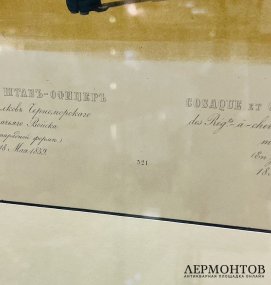 ШТАБЪ-ОФИЦЕРЪ
лковъ Черноморскаго
ачьяго Войска
арадной формѣ)
18. Мая 1852.
COSAQUE ET
des Regts. à che
m
(En
18
521
ЛЕРМОНТОВ
АНТИКВАРНАЯ ПЛОЩАДКА ОНЛАЙН